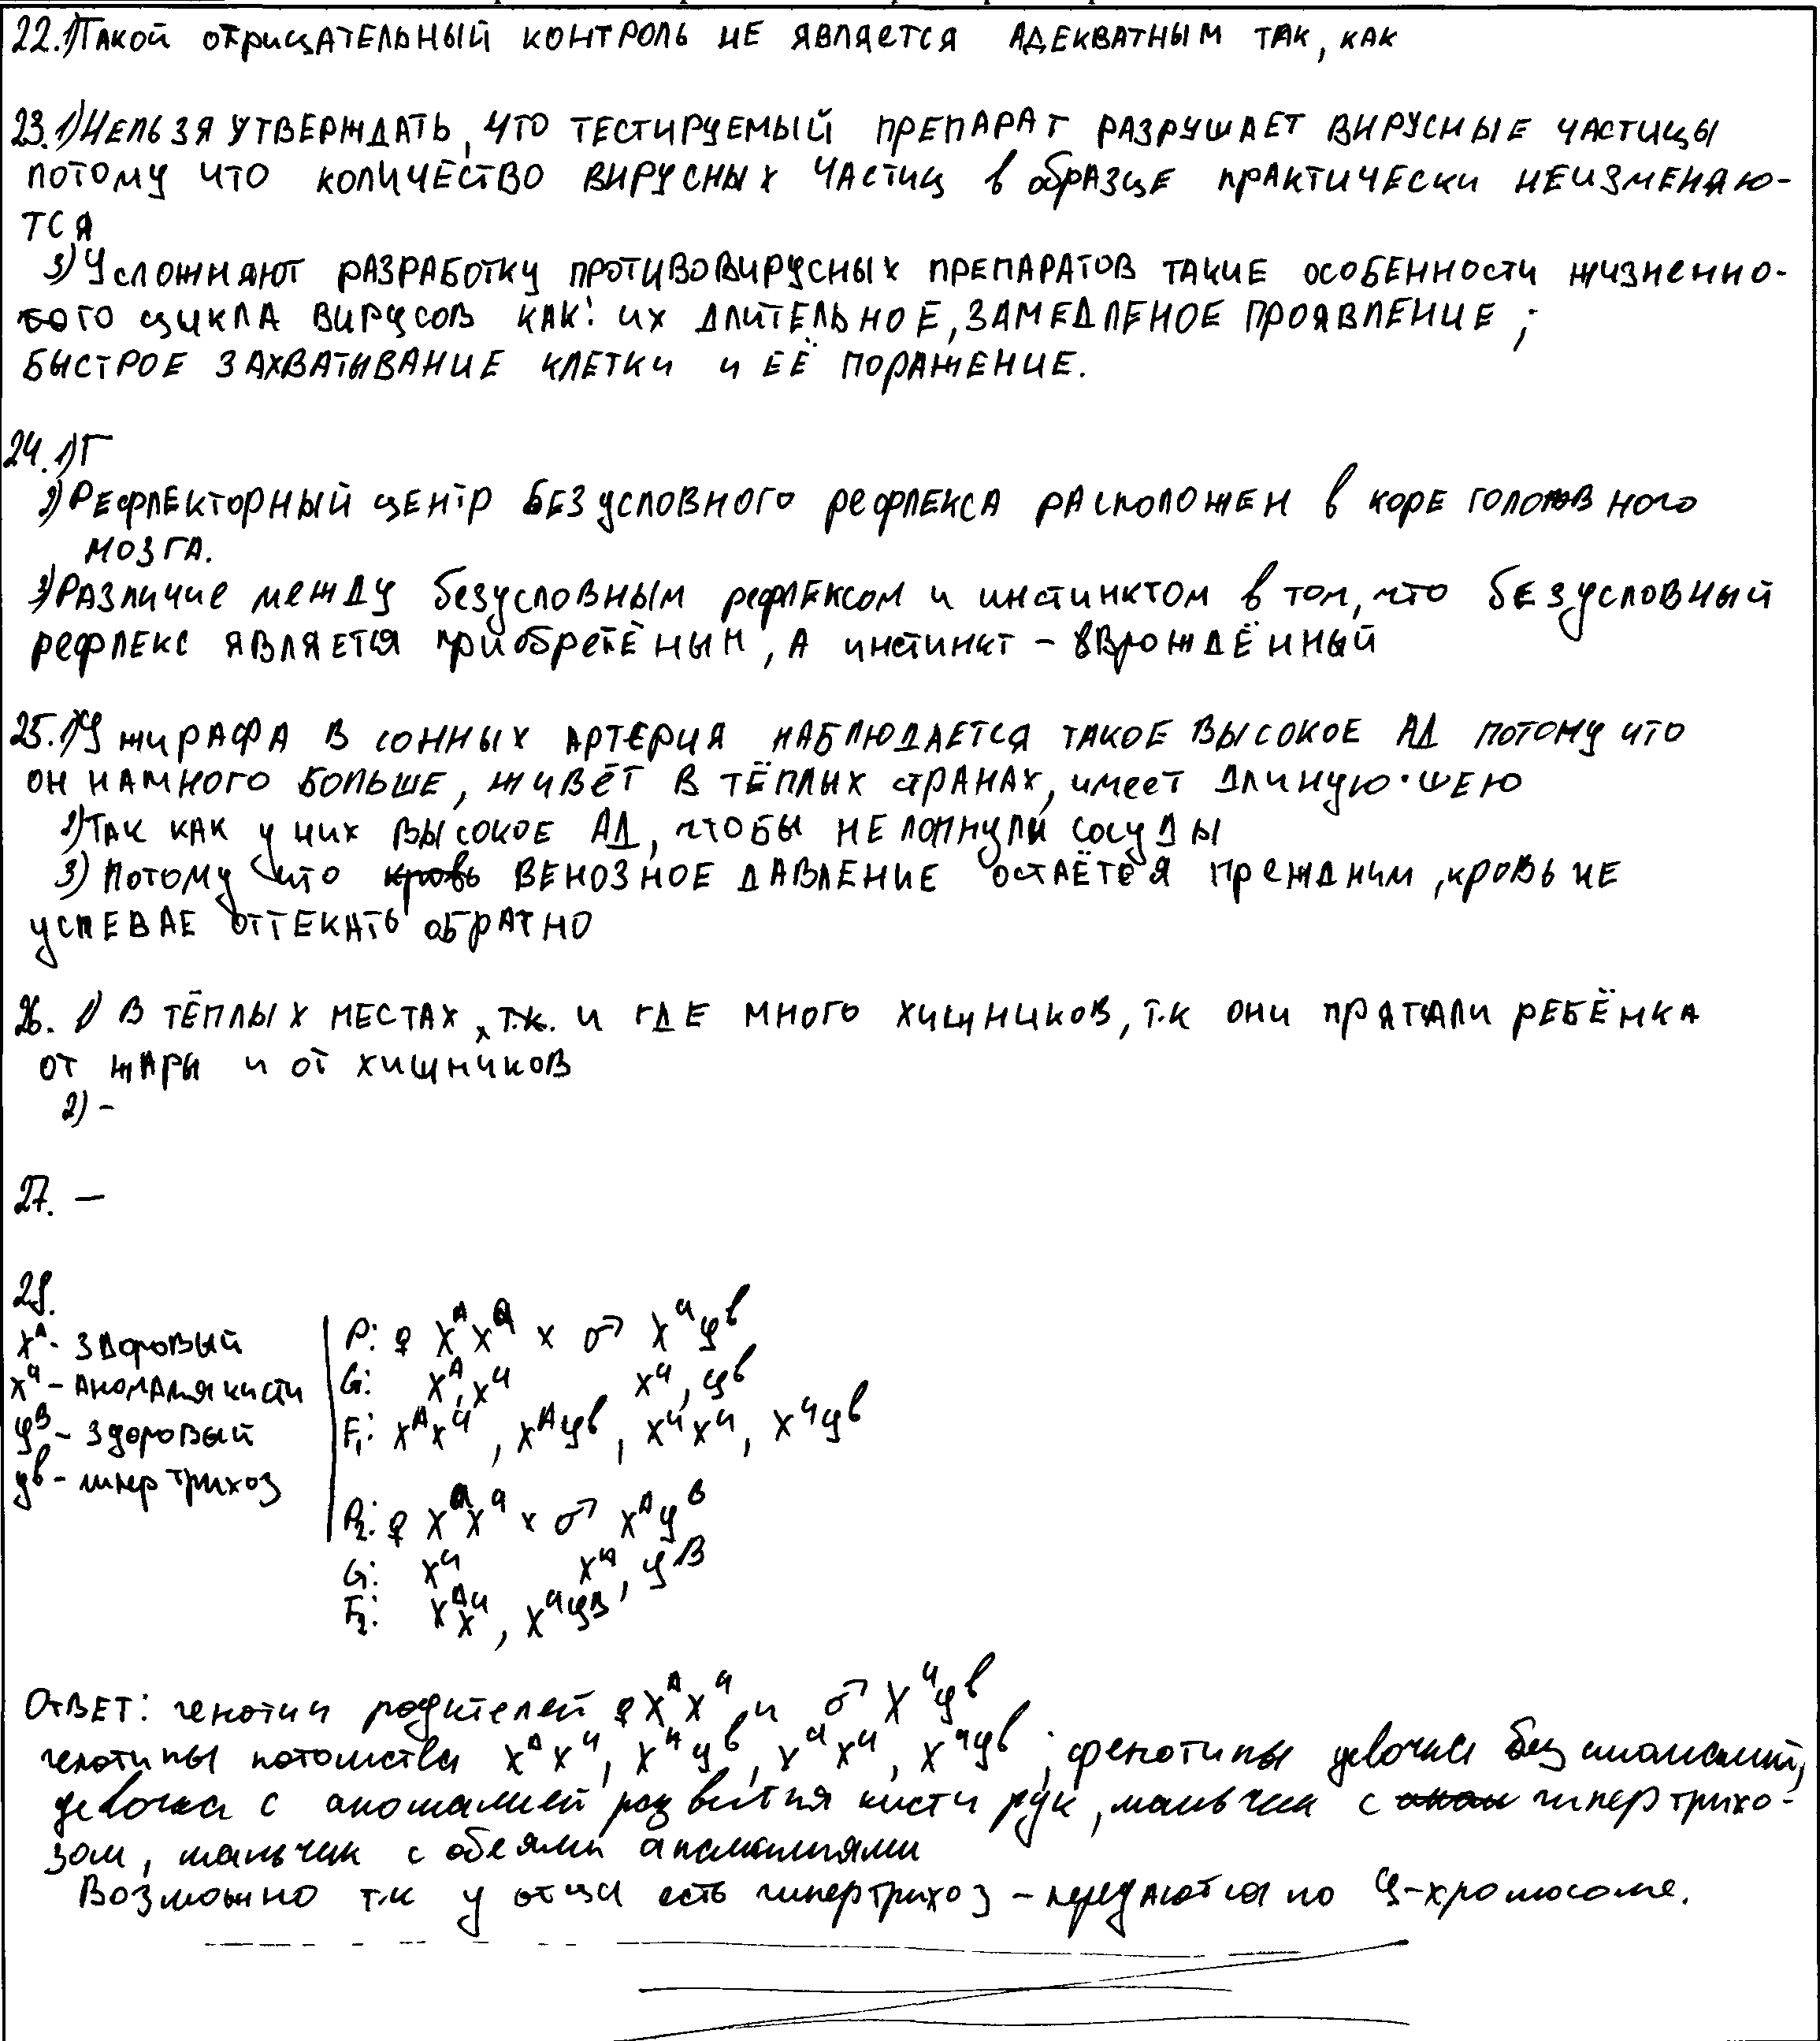 22.1) Такой отрицательный контроль не является адекватным так, как
23.1) Нельзя утверждать, что тестируемый препарат разрушает вирусные частицы
потому что количество вирусных частиц в образце практически неизменяю-
тся
3) Усложняют разработку противовирусных препаратов такие особенности жизненно-
го цикла вирусов как: их длительное, замедленое проявление;
быстрое захватывание клетки и её поражение.
24. 1) Г
2) Рефлекторный центр безусловного рефлекса расположен в коре головного
мозга.
3) Различие между безусловным рефлексом и инстинктом в том, что безусловный
рефлекс является приобретёным, а инстинкт - врождённый
25. 1) У жирафа в сонных артерия наблюдается такое высокое АД потому что
он намного больше, живёт в тёплых странах, имеет длиную шею
2) Так как у них высокое АД, чтобы не лопнули сосуды
3) Потому что кровь венозное давление остаётся преждним, кровь не
успевае оттекать обратно
26. 1) В тёплых местах, т.к. и где много хищников, т.к они прятали ребёнка
от жары и от хищников
2) -
27. —
28.
X^A - здоровый
X^a - аномалия кисти
У^B - здоровый
У^b - гипертрихоз
P: ♀ X^A X^a x ♂ X^a У^b
G: X^A, X^a X^a, У^b
F1: X^A X^a, X^A У^b, X^a X^a, X^a У^b
P2: ♀ X^a X^a x ♂ X^A У^B
G: X^a X^A, У^B
F2: X^A X^a, X^a У^B
Ответ: генотип родителей ♀ X^A X^a и ♂ X^a У^b
генотипы потомства X^A X^a, X^A У^b, X^a X^a, X^a У^b; фенотипы девочка без аномалий,
девочка с аномалией развития кисти рук, мальчик с гипертрихо-
зом, мальчик с обеями аномалиями
Возможно т.к у отца есть гипертрихоз - передаются по У-хромосоме.